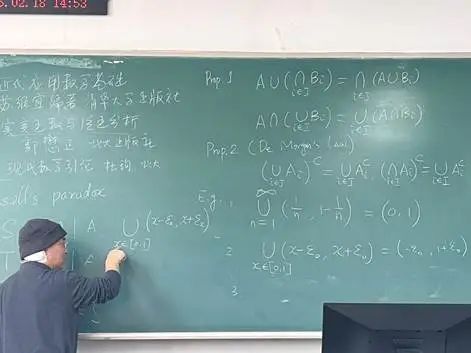 .02.18 14:53
近代应用数学基础
苏维宜编著 清华大学出版社
实变函数与泛函分析
郭懋正 北大出版社
现代数学引论
ssell's paradox
Prop. 1 A∪(∩_{i∈I} B_i) = ∩_{i∈I} (A∪B_i)
A∩(∪_{i∈I} B_i) = ∪_{i∈I} (A∩B_i)
Prop. 2 (De Morgan's law)
(∪_{i∈I} A_i)^c = ∩_{i∈I} A_i^c, (∩_{i∈I} A_i)^c = ∪_{i∈I} A_i^c
E.g. 1 ∪_{n=1}^{∞} (1/n, 1-1/n) = (0, 1)
S | A ∪_{x∈[0,1]} (x-ε_0, x+ε_0)
2 ∪_{x∈[0,1]} (x-ε_0, x+ε_0) = (-ε_0, 1+ε_0)
3